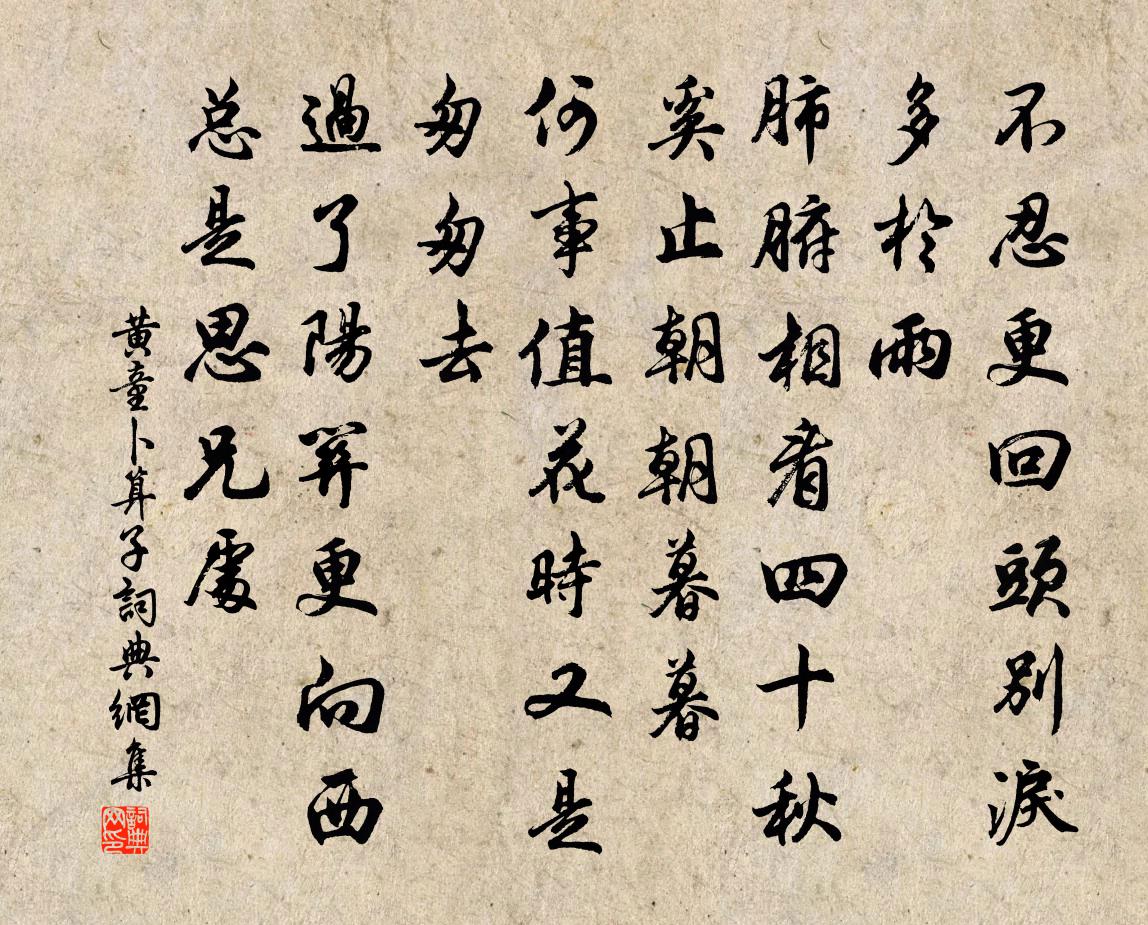 不忍更回頭別淚
多於雨
肺腑相看四十秋
奚止朝朝暮暮
何事值花時又是
匆匆去
過了陽關更向西
总是思兄處
黃童卜算子詞典網集
詞典網印